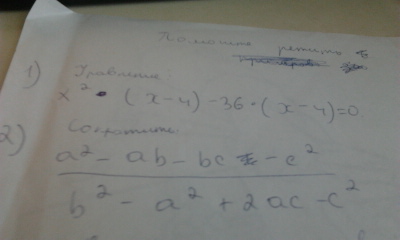 Помогите решить
1) Уравнение:
x² • (x-4) -36•(x-4)=0
2) Сократить:
a² - ab - bc - c²
b² - a² + 2ac - c²